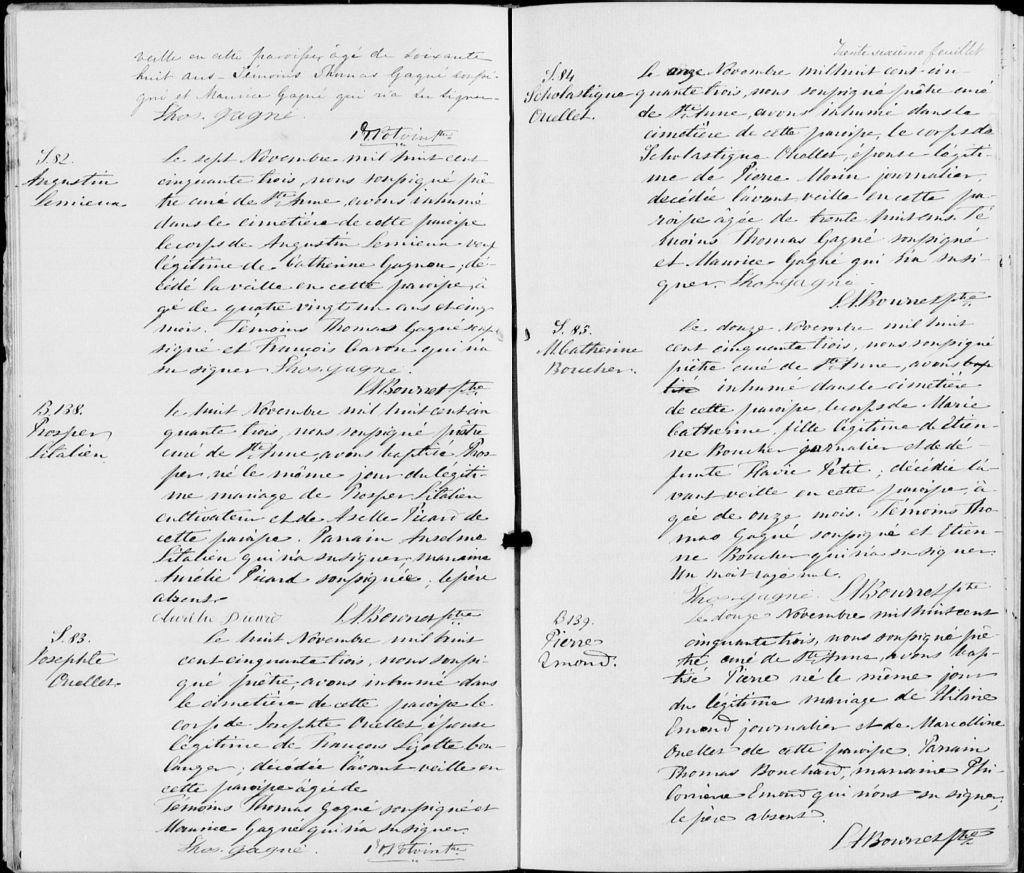 veille en cette paroisse, âgé de soixante
huit ans. Témoins Thomas Gagné soussi-
gné et Maurice Gagné qui n'a su signer.
Thos. Gagné.
Potvin Ptre
S. 82.
Augustin
Lemieux.
Le sept Novembre mil huit cent
cinquante trois, nous soussigné prê-
tre curé de Ste Anne, avons inhumé
dans le cimetière de cette paroisse
le corps de Augustin Lemieux veuf
légitime de Catherine Gagnon, dé-
cédé la veille en cette paroisse, â-
gé de quatre vingt un ans et cinq
mois. Témoins Thomas Gagné sous-
signé et François Caron qui n'a
su signer. Thos. Gagné.
Bourret Ptre
B. 138.
Prosper
Litalien.
Le huit Novembre mil huit cent cin
quante trois, nous soussigné prêtre
curé de Ste Anne, avons baptisé Pros-
per, né le même jour du légiti-
me mariage de Prosper Litalien
cultivateur et de Aselle Picard de
cette paroisse. Parrain Anselme
Litalien qui n'a su signer, marraine
Aurélie Picard soussignée; le père
absent.
Aurélie Picard
Bourret Ptre
S. 83.
Josephte
Ouellet.
Le huit Novembre mil huit
cent cinquante trois, nous soussi-
gné prêtre, avons inhumé dans
le cimetière de cette paroisse le
corps de Josephte Ouellet épouse
légitime de François Lizotte bou-
langer; décédée l'avant veille en
cette paroisse âgée de
Témoins Thomas Gagné soussigné et
Maurice Gagné qui n'a su signer.
Thos. Gagné.
Potvin Ptre
Trente sixième feuillet
S. 84
Scholastique
Ouellet.
Le onze Novembre mil huit cent cin-
quante trois, nous soussigné prêtre curé
de Ste Anne, avons inhumé dans le
cimetière de cette paroisse, le corps de
Scholastique Ouellet, épouse légiti-
me de Pierre Morin journalier,
décédée l'avant veille en cette pa-
roisse âgée de trente huit ans. Té
moins Thomas Gagné soussigné
et Maurice Gagné qui n'a su si-
gner. Thos. Gagné.
Bourret Ptre
S. 85.
M Catherine
Boucher.
Le douze Novembre mil huit
cent cinquante trois, nous soussigné
prêtre curé de Ste Anne, avons bap
tisé inhumé dans le cimetière
de cette paroisse, le corps de Marie
Catherine fille légitime de Etien-
ne Boucher journalier et de dé-
funte Flavie Petit; décédée l'a-
vant veille en cette paroisse, â-
gée de onze mois. Témoins Tho
mas Gagné soussigné et Etien-
ne Boucher qui n'a su signer.
Un mot rayé nul.
Thos. Gagné. Bourret Ptre
B 139.
Pierre
Emond.
Le douze Novembre mil huit cent
cinquante trois, nous soussigné prê-
tre, curé de Ste Anne, avons bap-
tisé Pierre né le même jour
du légitime mariage de Hilaire
Emond journalier et de Marcelline
Ouellet de cette paroisse. Parrain
Thomas Bouchard, marraine Phi-
Emond qui n'ont su signer;
le père absent.
Bourret Ptre